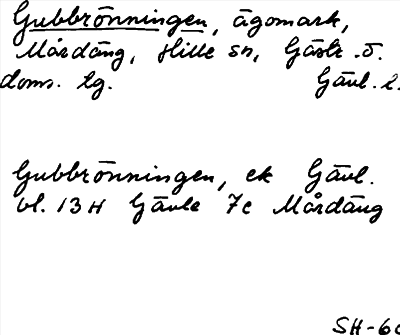 Gubbrönningen, ägomark,
Mårdäng, Hille sn, Gästr. ö.
doms. lg. Gävl. l.
Gubbrönningen, ek Gävl.
bl. 13H Gävle 7c Mårdäng
SH-60